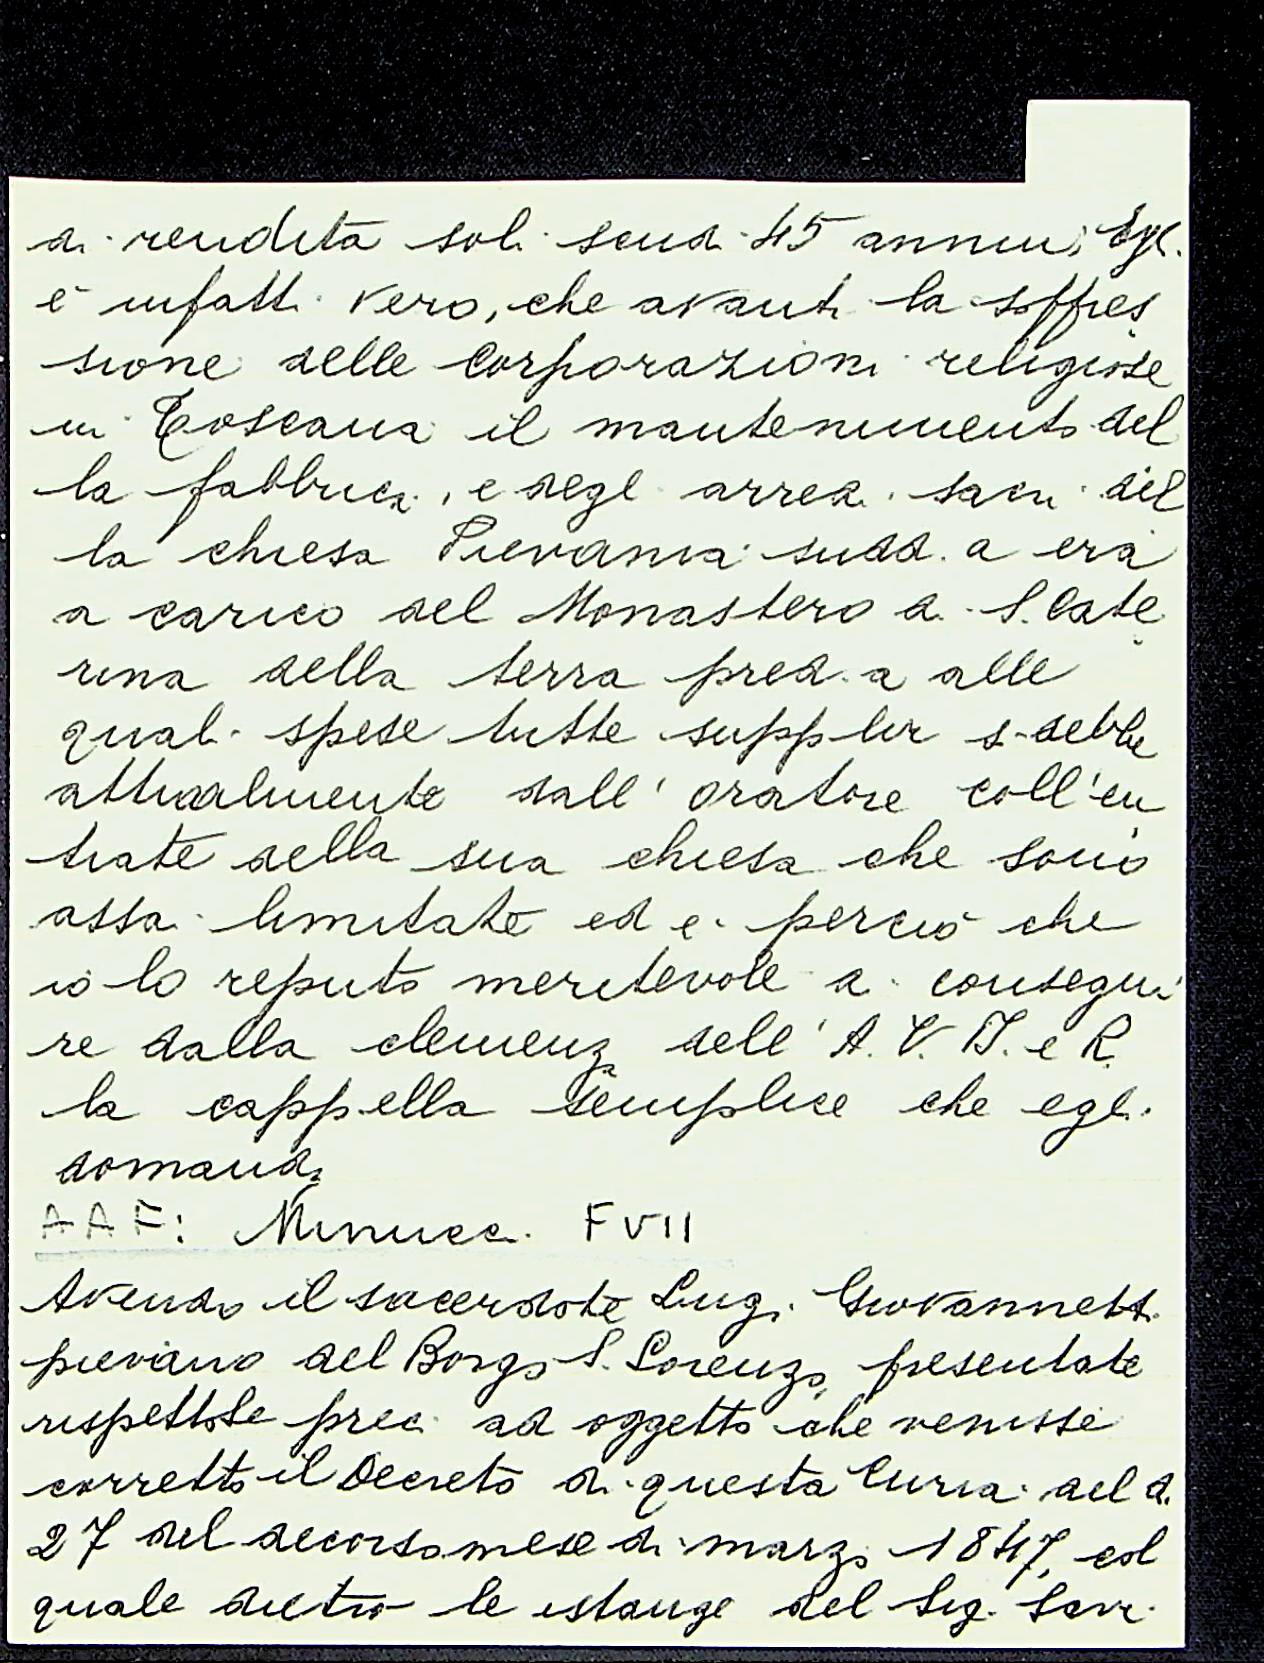 di rendita soli scudi 45 annui. Egli
è infatti vero, che avanti la soppres
sione delle Corporazioni religiose
in Toscana il mantenimento del
la fabbrica, e degli arredi sacri del
la chiesa Pievania sudd.a era
a carico del Monastero di S. Cate
rina della terra pred.a alle
quali spese tutte supplir si debbe
attualmente dall' oratore coll'en
trate della sua chiesa che sono
assai limitate ed è perciò che
io lo reputo meritevole a consegui
re dalla clemenza dell' A. V. I. e R.
la cappella semplice che egli
domanda
AAF: Minucci F VII
Avendo il sacerdote Luigi Giovannetti
pievano del Borgo S. Lorenzo, presentate
rispettose preci ad oggetto che venisse
corretto il Decreto di questa Curia del dì
27 del decorso mese di marzo 1847, col
quale dietro le istanze del Sig. Savi